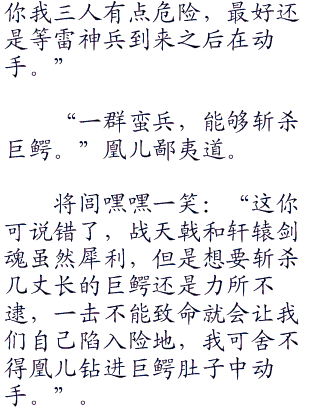 你我三人有点危险，最好还
是等雷神兵到来之后在动
手。”
“一群蛮兵，能够斩杀
巨鳄。”凰儿鄙夷道。
将闾嘿嘿一笑：“这你
可说错了，战天戟和轩辕剑
魂虽然犀利，但是想要斩杀
几丈长的巨鳄还是力所不
逮，一击不能致命就会让我
们自己陷入险地，我可舍不
得凰儿钻进巨鳄肚子中动
手。”。